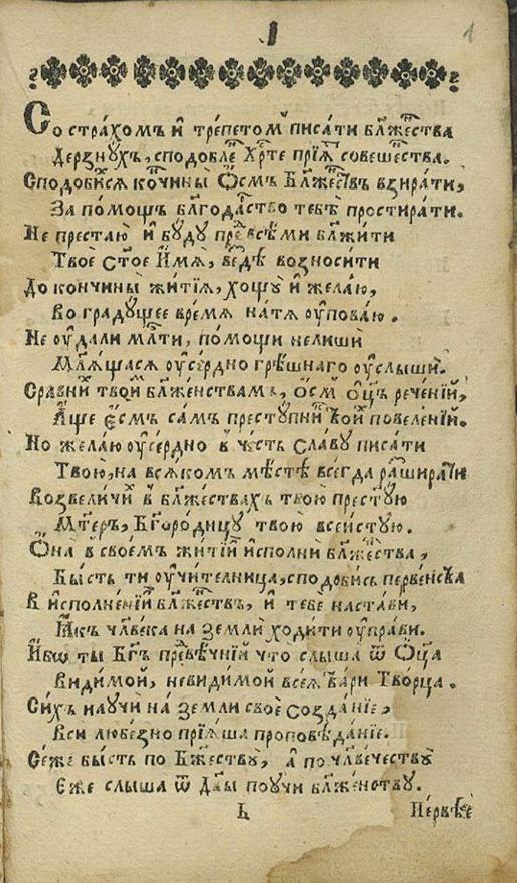 1
1
Со стра́хомъ и҆ тре́петомъ писа́ти бл҃же́нства
Дерзнꙋ́хъ, сподо́бле Хрⷭ҇те прїѧ́ совеше́нства.
Сподо́бисѧ ко́нчины Ѻ҆́смъ Бл҃же́нствъ взира́ти,
За по́мощъ бл҃года́рство тебѣ̀ простира́ти.
Не престаю̀ и҆ бꙋ́дꙋ пре́дъ всѣ́ми бл҃жи́ти
Твоѐ ст҃ое И҆́мѧ, ве́здѣ возноси́ти
До кончи́ны жи́тїѧ, хощꙋ̀ и҆ жела́ю,
Во градꙋ́щее вре́мѧ на́ тѧ ᲂу҆пова́ю.
Не ᲂу҆дали́ млⷭ҇ти, по́мощи нелишѝ
Мл҃ѧ́щасѧ ᲂу҆се́рдно грѣ́шнаго ᲂу҆слы́ши.
Сравни́хъ твои́мъ бл҃же́нствамъ, ѻ҆́смъ рече́нїй,
А҆́ще є҆́смъ са́мъ престꙋ́пникъ твои́ повеле́нїй.
Но жела́ю ᲂу҆се́рдно в че́сть сла́вꙋ писа́ти
Твою̀, на всѧ́комъ мѣ́стѣ всегда̀ разшира́ти
Возвели́чихъ в бл҃же́ствахъ твою̀ прест҃ꙋ́ю
Мт҃еръ, Бг҃оро́дицꙋ твою̀ всеи́стꙋю.
Ѻ҆на̀ в свое́мъ жи́тїи и҆спо́лни бл҃же́нства,
Бы́сть ти ᲂу҆чи́телница, сподо́бись пе́рвенства
В и҆сполне́нїи бл҃же́нствъ, и҆ тебѐ наста́ви,
Ꙗ҆́къ чл҃вѣ́ка на землѝ ходи́ти ᲂу҆пра́ви.
И҆́бѡ ты Бг҃ъ предвѣ́чнїй что слы́ша ѿ Ѻ҆ц҃а̀
Види́мой, неви́димой всеѧ̀ тва́ри Творца̀.
Си́хъ наꙋчѝ на землѝ своѐ созда́нїе,
Вси любе́зно прїѧ́ша проповѣ́данїе.
Се́же бы́сть по Бж҃ествꙋ̀, а҆ по чл҃вѣ́чествꙋ̀
Є҆́же слы́ша ѿ Дв҃ы поꙋчѝ бл҃же́нствꙋ.
Пе́рвѣе